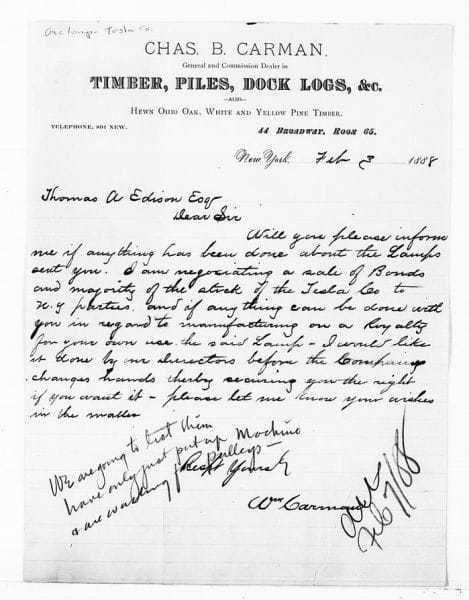 Arc lamps Tesla Co.
CHAS. B. CARMAN.
General and Commission Dealer in
TIMBER, PILES, DOCK LOGS, &c.
—ALSO—
HEWN OHIO OAK, WHITE AND YELLOW PINE TIMBER.
TELEPHONE, 891 NEW.
44 BROADWAY, ROOM 65.
New York, Feb 3 1888
Thomas A Edison Esq
Dear Sir
Will you please inform
me if anything has been done about the Lamps
sent you. I am negociating a sale of Bonds
and majority of the stock of the Tesla Co to
N.Y parties. and if any thing can be done with
you in regard to manufacturing on a Royalty
for your own use the said Lamp - I would like
it done by our Directors before the Company
changes hands therby securing you the right
if you want it - please let me know your wishes
in the matter
Resp Yours
Wm Carman
We are going to test them
have only just put up Machine
& are waiting for Pulleys -
Feb 7/88